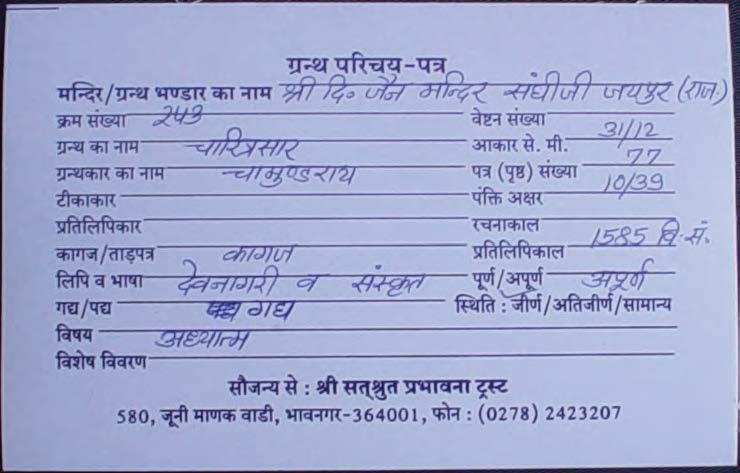 ग्रन्थ परिचय-पत्र
मन्दिर/ग्रन्थ भण्डार का नाम श्री दि॰ जैन मन्दिर संघीजी जयपुर (राज.)
क्रम संख्या 243 वेष्टन संख्या
ग्रन्थ का नाम चारित्रसार आकार से. मी. 31/12
ग्रन्थकार का नाम चामुण्डराय पत्र (पृष्ठ) संख्या 77
टीकाकार पंक्ति अक्षर 10/39
प्रतिलिपिकार रचनाकाल
कागज/ताड़पत्र कागज प्रतिलिपिकाल 1585 वि.सं.
लिपि व भाषा देवनागरी व संस्कृत पूर्ण/अपूर्ण अपूर्ण
गद्य/पद्य गद्य स्थिति : जीर्ण/अतिजीर्ण/सामान्य
विषय अध्यात्म
विशेष विवरण
सौजन्य से : श्री सत्श्रुत प्रभावना ट्रस्ट
580, जूनी माणक वाडी, भावनगर-364001, फोन : (0278) 2423207